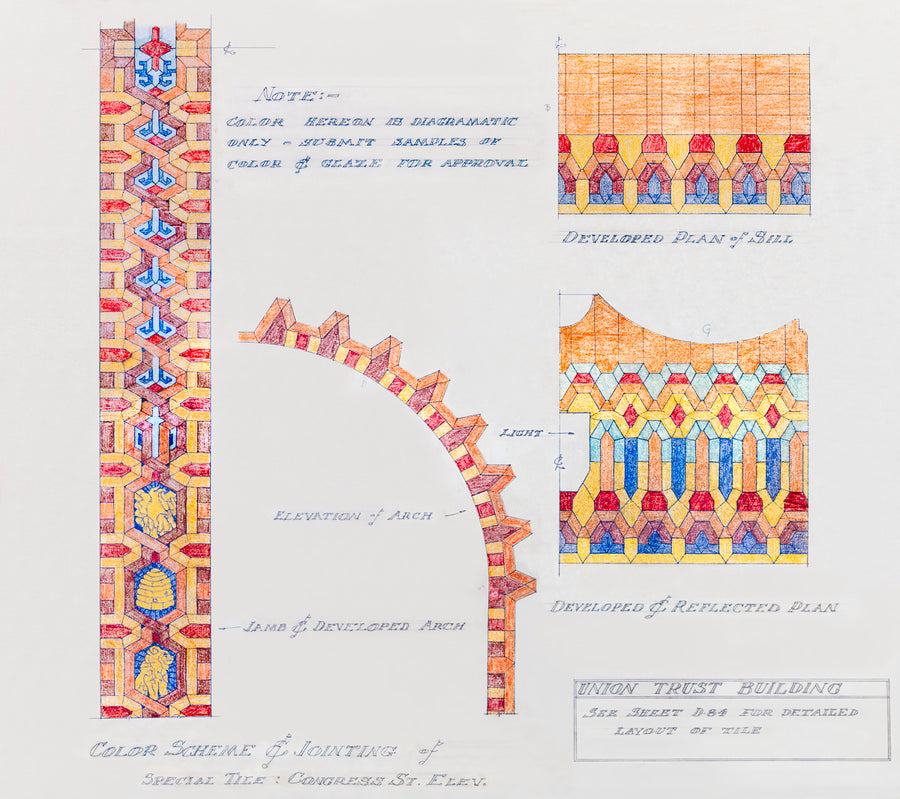 NOTE:-
COLOR HEREON IS DIAGRAMATIC
ONLY - SUBMIT SAMPLES OF
COLOR & GLAZE FOR APPROVAL
DEVELOPED PLAN of SILL
G
LIGHT
ELEVATION of ARCH
DEVELOPED & REFLECTED PLAN
JAMB & DEVELOPED ARCH
UNION TRUST BUILDING
SEE SHEET D-84 FOR DETAILED
LAYOUT OF TILE
COLOR SCHEME & JOINTING of
SPECIAL TILE : CONGRESS ST. ELEV.